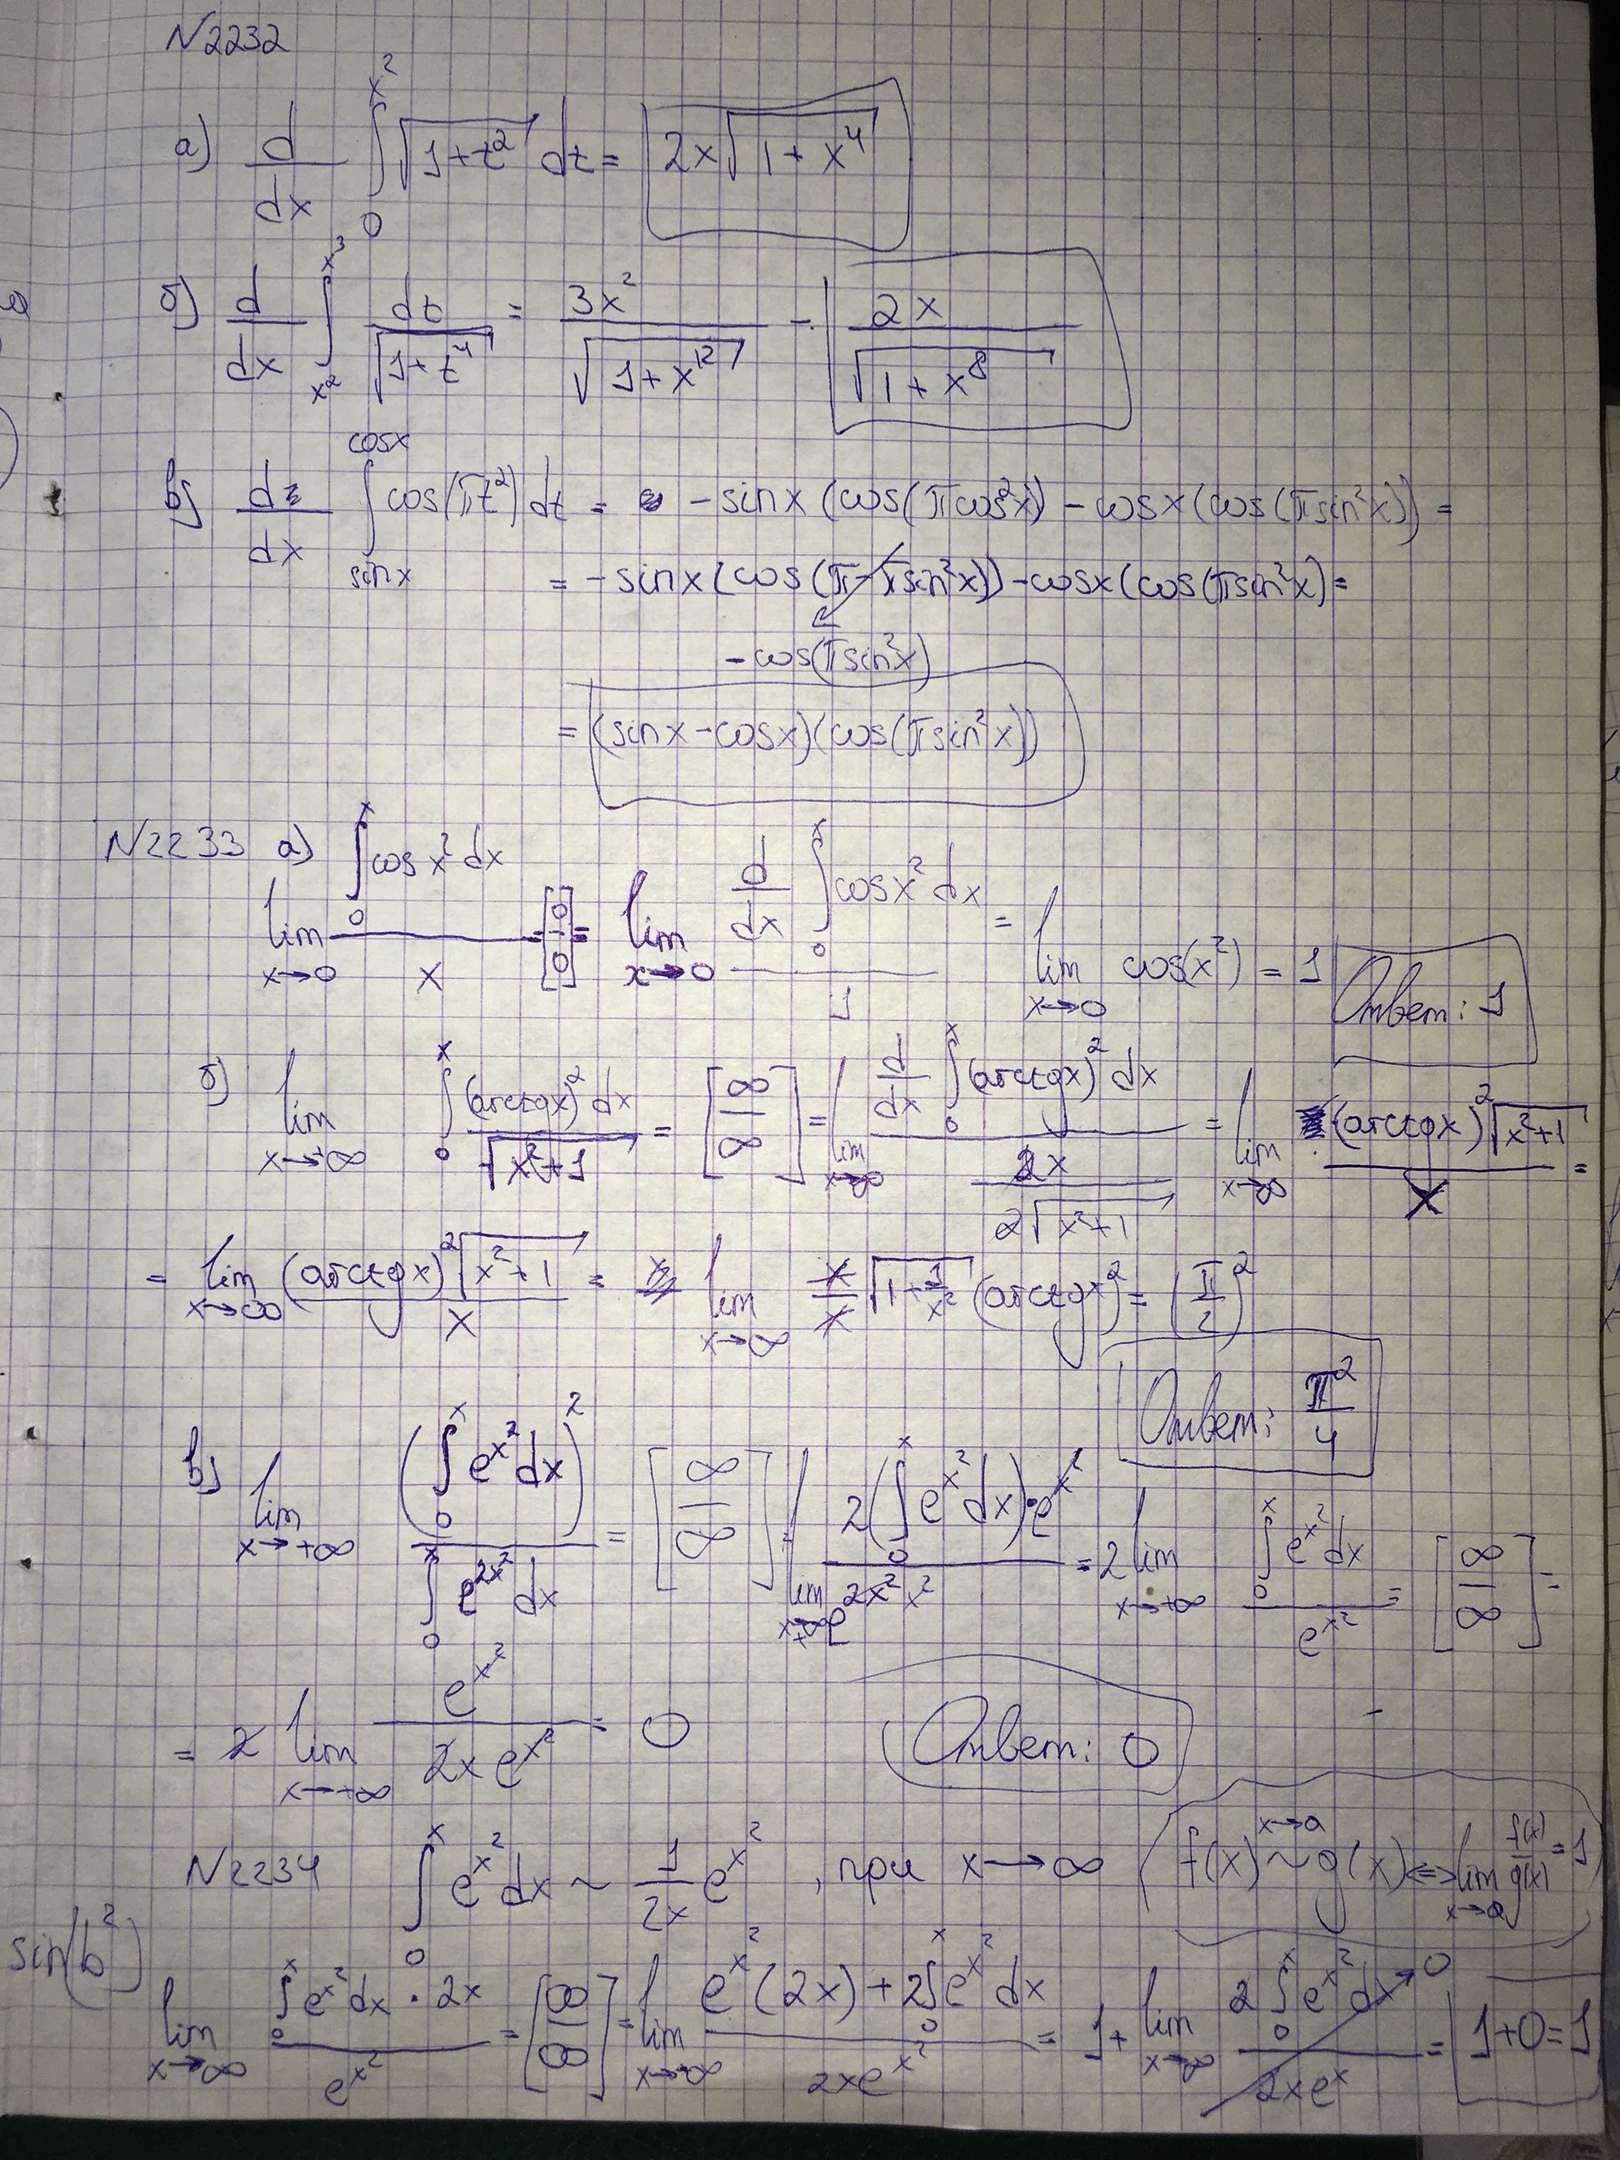 N2232
а) d/dx ∫₀^{x²} √(1+t²) dt = 2x√(1+x⁴)
б) d/dx ∫_{x²}^{x³} dt/√(1+t⁴) = 3x²/√(1+x¹²) - 2x/√(1+x⁸)
в) d/dx ∫_{sinx}^{cosx} cos(πt²) dt = -sinx (cos(πcos²x) - cosx(cos(πsin²x)) =
= -sinx(cos(π-πsin²x)) - cosx(cos(πsin²x) =
-cos(πsin²x)
= (sinx-cosx)(cos(πsin²x))
N2233 а) lim_{x→0} ∫₀^x cos x² dx / x = [0/0] = lim_{x→0} d/dx ∫₀^x cosx² dx / 1 = lim_{x→0} cos(x²) = 1 Ответ: 1
б) lim_{x→+∞} ∫₀^x (arctgx)² dx / √(x²+1) = [∞/∞] = lim_{x→∞} d/dx ∫₀^x (arctgx)² dx / (2x / 2√(x²+1)) = lim_{x→∞} (arctgx)² √(x²+1) / x =
= lim_{x→∞} (arctgx)² √(x²+1) / x = lim_{x→∞} x/x √(1+1/x²) (arctgx)² = (π/2)²
Ответ: π²/4
в) lim_{x→+∞} (∫₀^x e^{x²} dx)² / ∫₀^x e^{2x²} dx = [∞/∞] = lim_{x→+∞} 2(∫₀^x e^{x²} dx)·e^{x²} / e^{2x²} = 2 lim_{x→+∞} ∫₀^x e^{x²} dx / e^{x²} = [∞/∞] =
= 2 lim_{x→+∞} e^{x²} / 2x e^{x²} = 0 Ответ: 0
N2234 ∫₀^x e^{x²} dx ~ 1/2x e^{x²}, при x→∞ (f(x) ~ g(x) x→a ⇔ lim_{x→a} f(x)/g(x) = 1
sin(b²)
lim_{x→∞} ∫₀^x e^{x²} dx · 2x / e^{x²} = [∞/∞] = lim_{x→∞} e^{x²}(2x) + 2∫₀^x e^{x²} dx / 2xe^{x²} = 1 + lim_{x→∞} 2∫₀^x e^{x²} dx / 2xe^x → 0 = 1+0=1